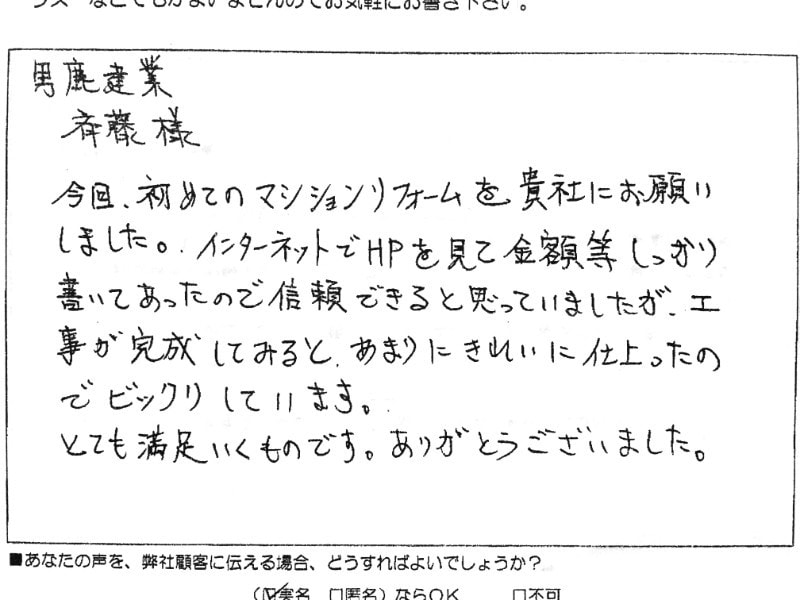 などでもかまいませんのでお気軽にお書き下さい。
男鹿建業
斉藤様
今回、初めてのマンションリフォームを貴社にお願い
しました。インターネットでHPを見て金額等しっかり
書いてあったので信頼できると思っていましたが、工
事が完成してみると、あまりにきれいに仕上ったの
でビックリしています。
とても満足いくものです。ありがとうございました。
■あなたの声を、弊社顧客に伝える場合、どうすればよいでしょうか?
(☑実名 □匿名)ならOK □不可